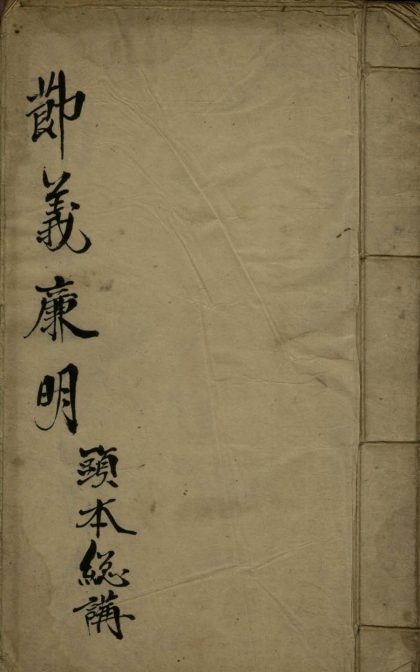 節義廉明
頭本総講